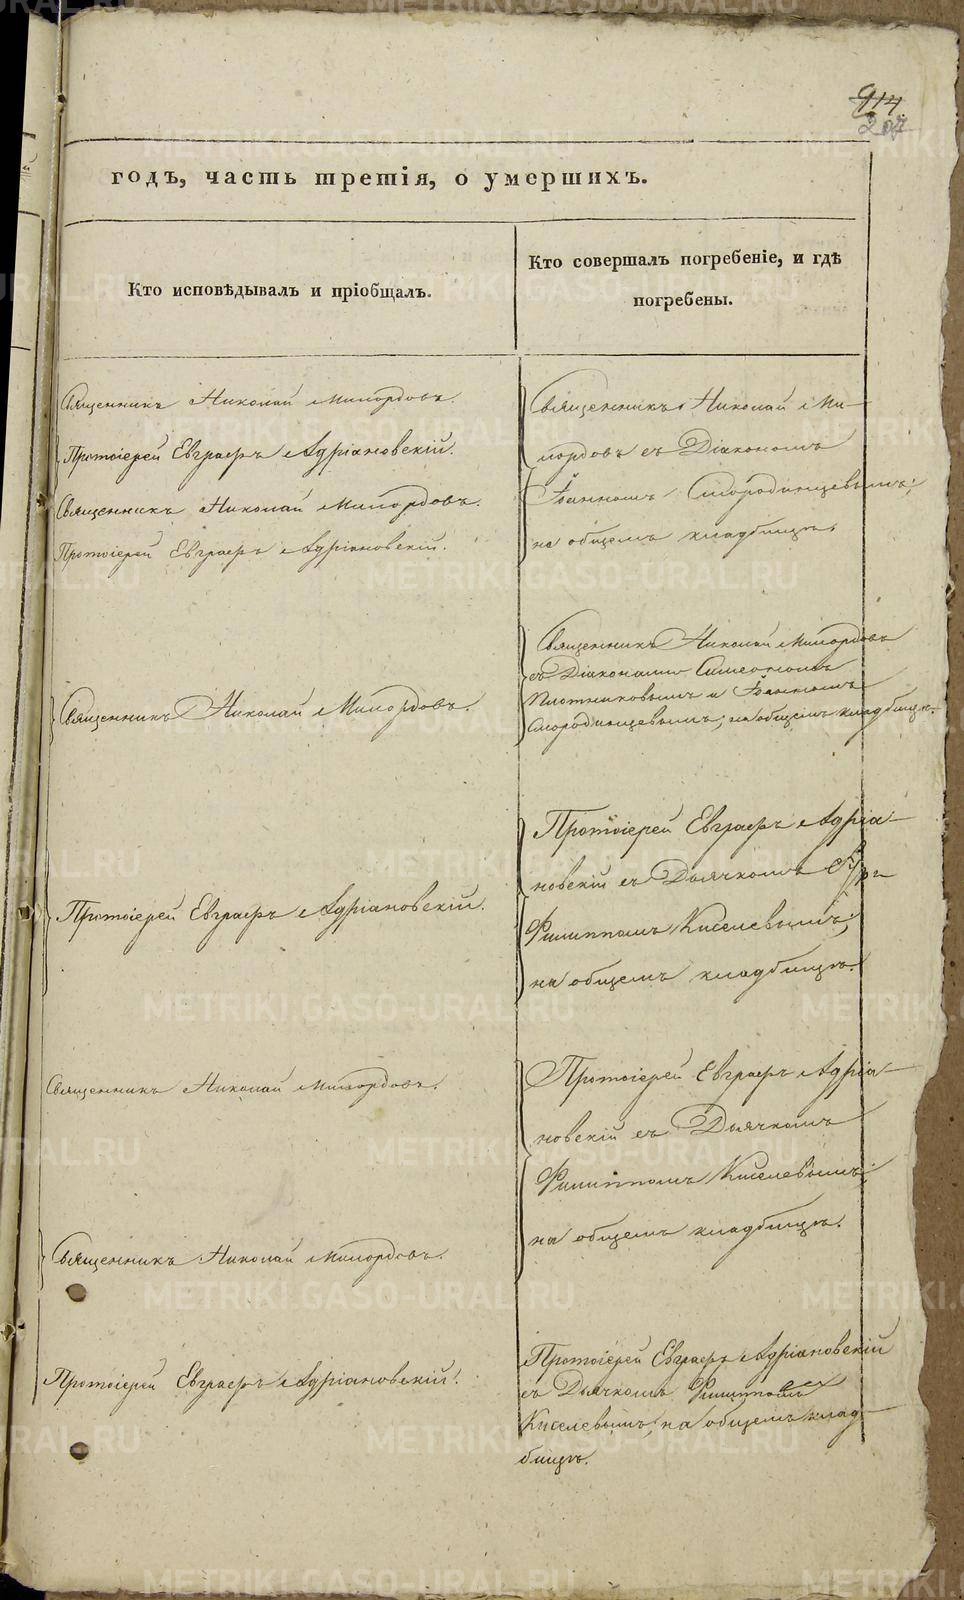 914
207
годъ, часть третія, о умершихъ.
Кто исповѣдывалъ и пріобщалъ.
Кто совершалъ погребеніе, и гдѣ
погребены.
Священникъ Николай Милордовъ.
Протоіерей Евграфъ Адріановскій.
Священникъ Николай Милордовъ.
Протоіерей Евграфъ Адріановскій.
Священникъ Николай Ми-
лордовъ съ Діакономъ
Іоанномъ Смородинцевымъ;
на общемъ кладбищѣ.
Священникъ Николай Милордовъ.
Священникъ Николай Милордовъ
съ Діаконами Симеономъ
Плотниковымъ и Іоанномъ
Смородинцевымъ; на общемъ кладбищѣ.
Протоіерей Евграфъ Адріановскій.
Протоіерей Евграфъ Адріа-
новскій съ Дьячкомъ
Филиппомъ Киселевымъ;
на общемъ кладбищѣ.
Священникъ Николай Милордовъ.
Священникъ Николай Милордовъ.
Протоіерей Евграфъ Адріа-
новскій съ Дьячкомъ
Филиппомъ Киселевымъ;
на общемъ кладбищѣ.
Протоіерей Евграфъ Адріановскій.
Протоіерей Евграфъ Адріановскій
съ Дьячкомъ Филиппомъ
Киселевымъ; на общемъ клад-
бищѣ.
METRIKI.GASO-URAL.RU